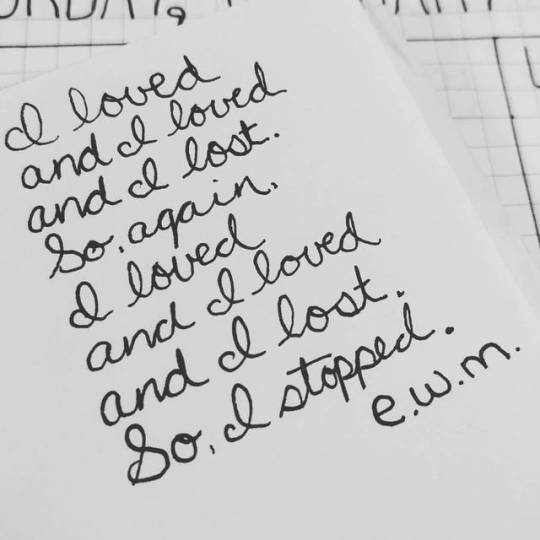 I loved
and I loved
and I lost.
So, again,
I loved
and I loved
and I lost.
So, I stopped.
e.w.m.